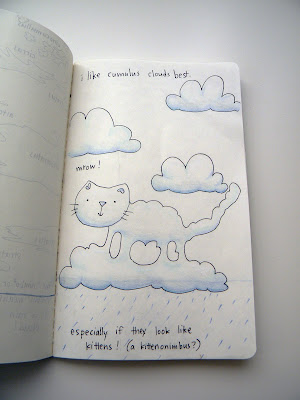 i like cumulus clouds best.
mrow!
especially if they look like
kittens! (a kitenonimbus?)